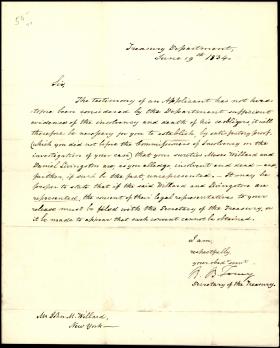 Treasury Department,
June 19th 1834.
Sir,
The testimony of an Applicant has not heretofore
been considered by the Department sufficient
evidence of the insolvency and death of his
therefore be necessary for you to establish by satisfactory proof,
(which you did not before the Commissioners of Insolvency on the
investigation of your case) that your sureties Moses Willard and
Daniel Livingston are as you alledge insolvent and dead and
further, if such be the fact unrepresented. It may be
proper to state that if the said Willard and Livingston are
represented, the consent of their legal representatives to your
release must be filed with the Secretary of the Treasury, or
it be made to appear that such consent cannot be obtained.
I am,
respectfully
your obdt servt
R. B. Taney
Secretary of the Treasury.
Mr John M. Willard,
New York